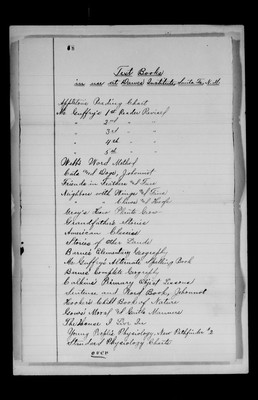 Text Books
in use at Dawes Institute, Santa Fe, N.M.
Appletons Reading Chart
Mc Guffey's 1st Reader Revised
" 2nd " "
" 3rd " "
" 4th " "
" 5th " "
Webbs Word Method
Cats and Dogs, Johonnot
Friends in Feathers and Fur
Neighbors with Wings and Fins
" " Claws and Hoofs
Gray's How Plants Grow
Grandfather's Stories
American Classics
Stories of Other Lands
Barnes Elementary Geography
Mc Guffey's Alternate Spelling Book
Barnes Complete Geography
Calkins Primary Object Lessons
Sentence and Word Book, Johonnot
Hooker's Child Book of Nature
Gow's Moral and Manners
The House I Live In
Young People's Physiology, New Pathfinder #2
Physiology Charts